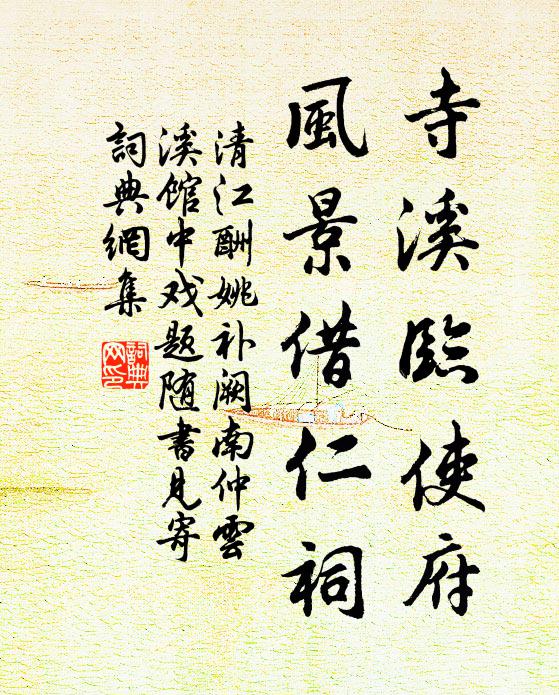 寺溪臨使府
風景借仁祠
清江酬姚补阙南仲雲
溪馆中戏题随書见寄
詞典網集
詞典网印